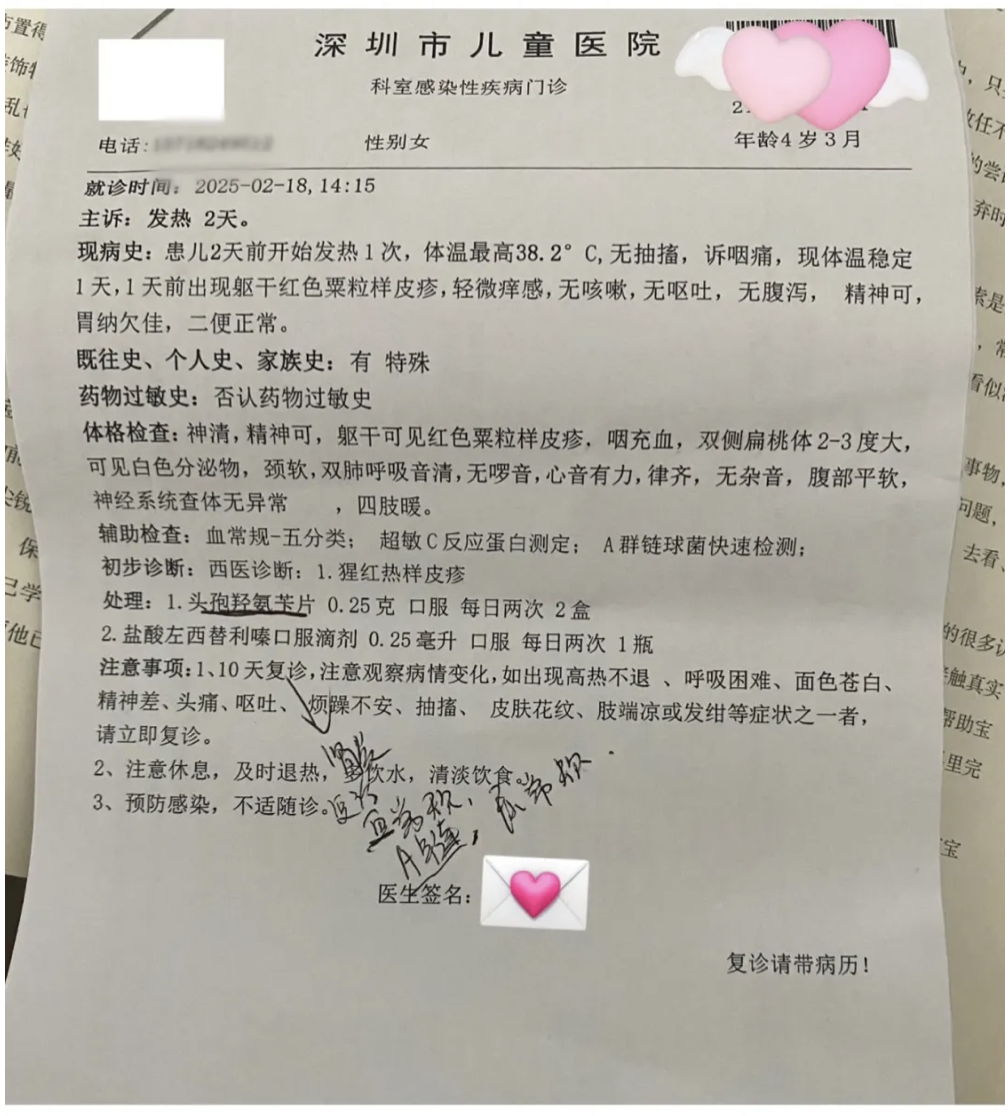 深圳市儿童医院
科室感染性疾病门诊
电话:
性别女
年龄4岁3月
就诊时间：2025-02-18,14:15
主诉：发热 2天。
现病史：患儿2天前开始发热1次，体温最高38.2°C,无抽搐，诉咽痛，现体温稳定
1天,1天前出现躯干红色粟粒样皮疹,轻微痒感,无咳嗽,无呕吐，无腹泻， 精神可，
胃纳欠佳，二便正常。
既往史、个人史、家族史：有 特殊
药物过敏史：否认药物过敏史
体格检查：神清,精神可，躯干可见红色粟粒样皮疹，咽充血，双侧扁桃体2-3度大，
可见白色分泌物，颈软,双肺呼吸音清,无啰音,心音有力,律齐，无杂音，腹部平软，
神经系统查体无异常 ，四肢暖。
辅助检查：血常规-五分类； 超敏C反应蛋白测定； A群链球菌快速检测；
初步诊断：西医诊断：1.猩红热样皮疹
处理：1.头孢羟氨苄片 0.25克 口服 每日两次 2盒
2.盐酸左西替利嗪口服滴剂 0.25毫升 口服 每日两次 1瓶
注意事项:1、10天复诊,注意观察病情变化,如出现高热不退 、呼吸困难、面色苍白、
精神差、头痛、呕吐、 烦躁不安、抽搐、 皮肤花纹、肢端凉或发绀等症状之一者，
请立即复诊。
2、注意休息，及时退热，饮水，清淡饮食。
3、预防感染，不适随诊。
血常规、尿常规
A链
医生签名：
复诊请带病历!